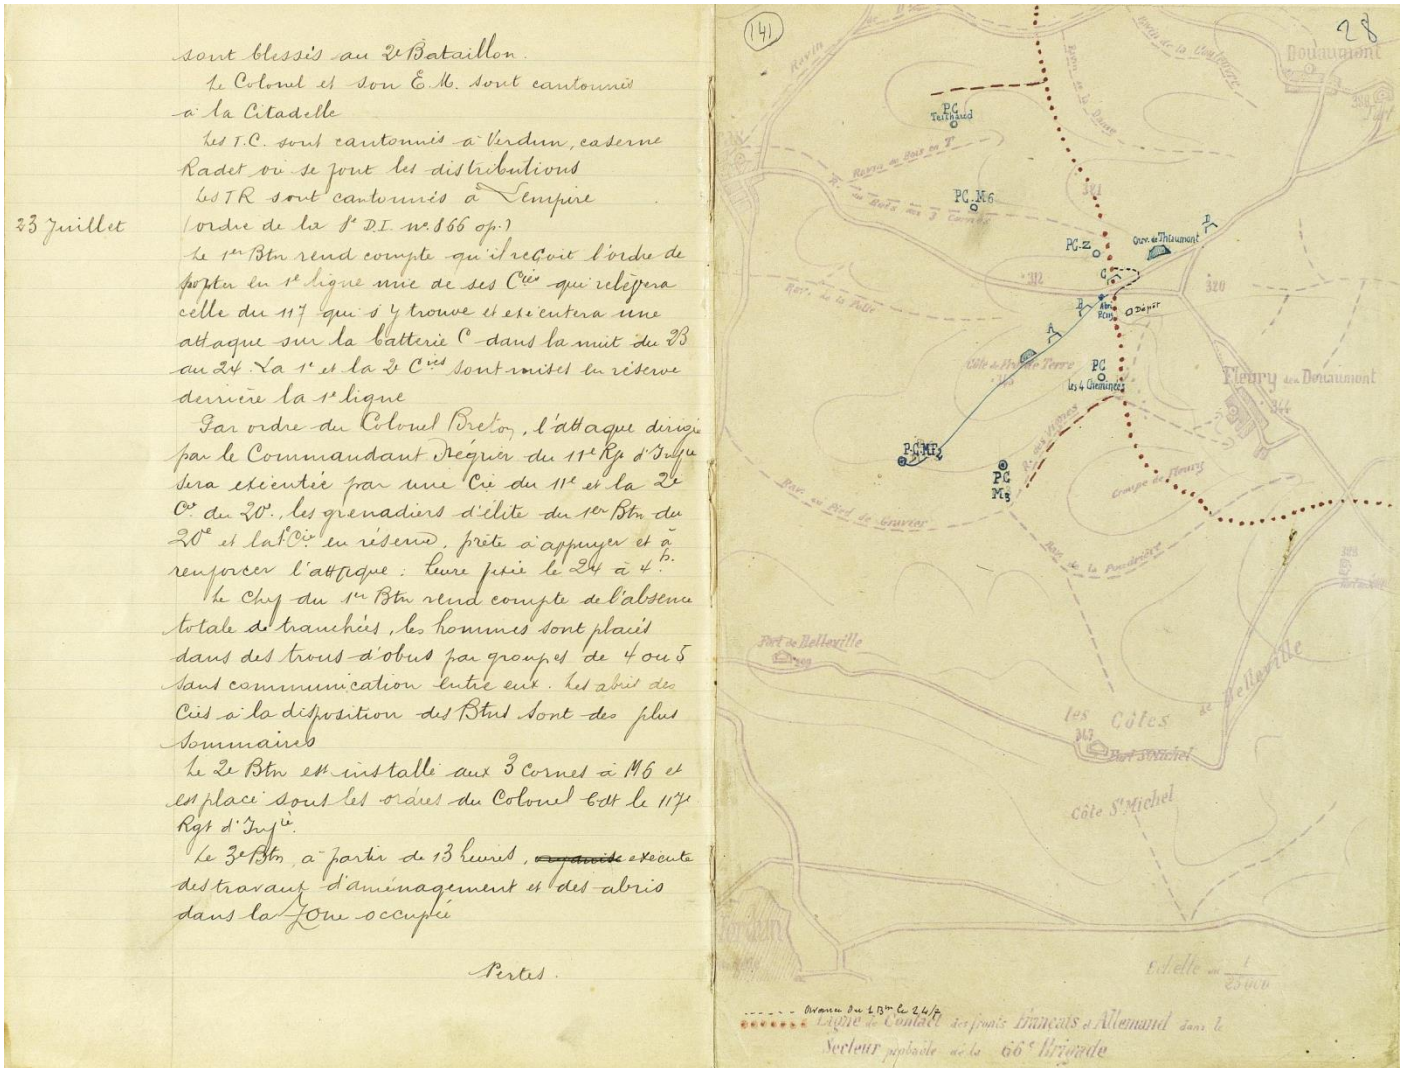 sont blessés au 2e Bataillon.
Le Colonel et son E.M. sont cantonnés
à la Citadelle
Les T.C. sont cantonnés à Verdun, caserne
Radet où se font les distributions
Les TR sont cantonnés à Lempire
23 Juillet
(ordre de la 8e D.I. no. 866 op.)
Le 1er Btn rend compte qu'il reçoit l'ordre de
porter en 1e ligne une de ses Cies qui relèvera
celle du 117 qui s'y trouve et exécutera une
attaque sur la batterie C dans la nuit du 23
au 24. La 1e et la 2e Cies sont mises en réserve
derrière la 1e ligne
Par ordre du Colonel Breton, l'attaque dirigée
par le Commandant du 11e Rgt d'Infie
sera exécutée par une Cie du 11e et la 2e
Cie du 20e, les grenadiers d'élite du 1er Btn du
20e et la 1e Cie en réserve, prête à appuyer et à
renforcer l'attaque : heure fixée le 24 à 4h.
Le Chef du 1er Btn rend compte de l'absence
totale de tranchées, les hommes sont placés
dans des trous d'obus par groupes de 4 ou 5
sans communication entre eux. Les abris des
Cies à la disposition des Btns sont des plus
sommaires
Le 2e Btn est installé aux 3 Cornes à M6 et
est placé sous les ordres du Colonel Cdt le 117e
Rgt d'Infie.
Le 3e Btn, à partir de 13 heures, exécute
des travaux d'aménagement et des abris
dans la zone occupée
Pertes.
141
28
Douaumont
Ravin
Ravin de la Couleuvre
Ravin de la Dame
Fort
PC
Ravin du Bois en T
R. du Bois des 3 Cornes
PC. M6
321
PC. Z
Ouv. de Thiaumont
D
C
312
320
Rav. de la Folie
B
Abri
Dépôt
A
Côte de Froide Terre
PC
les 4 Cheminées
Fleury dev. Douaumont
344
R. des Vignes
P.C. MF2
PC
M3
Croupe de Fleury
Rav. du Pied du Gravier
Rav. de la Poudrière
Fort de Belleville
les Côtes de Belleville
343
Fort St Michel
Côte St Michel
Verdun
Echelle au 1/25000
Avance du 1 Btn le 24/7
Ligne de Contact des fronts Français et Allemand dans le
Secteur probable de la 66e Brigade